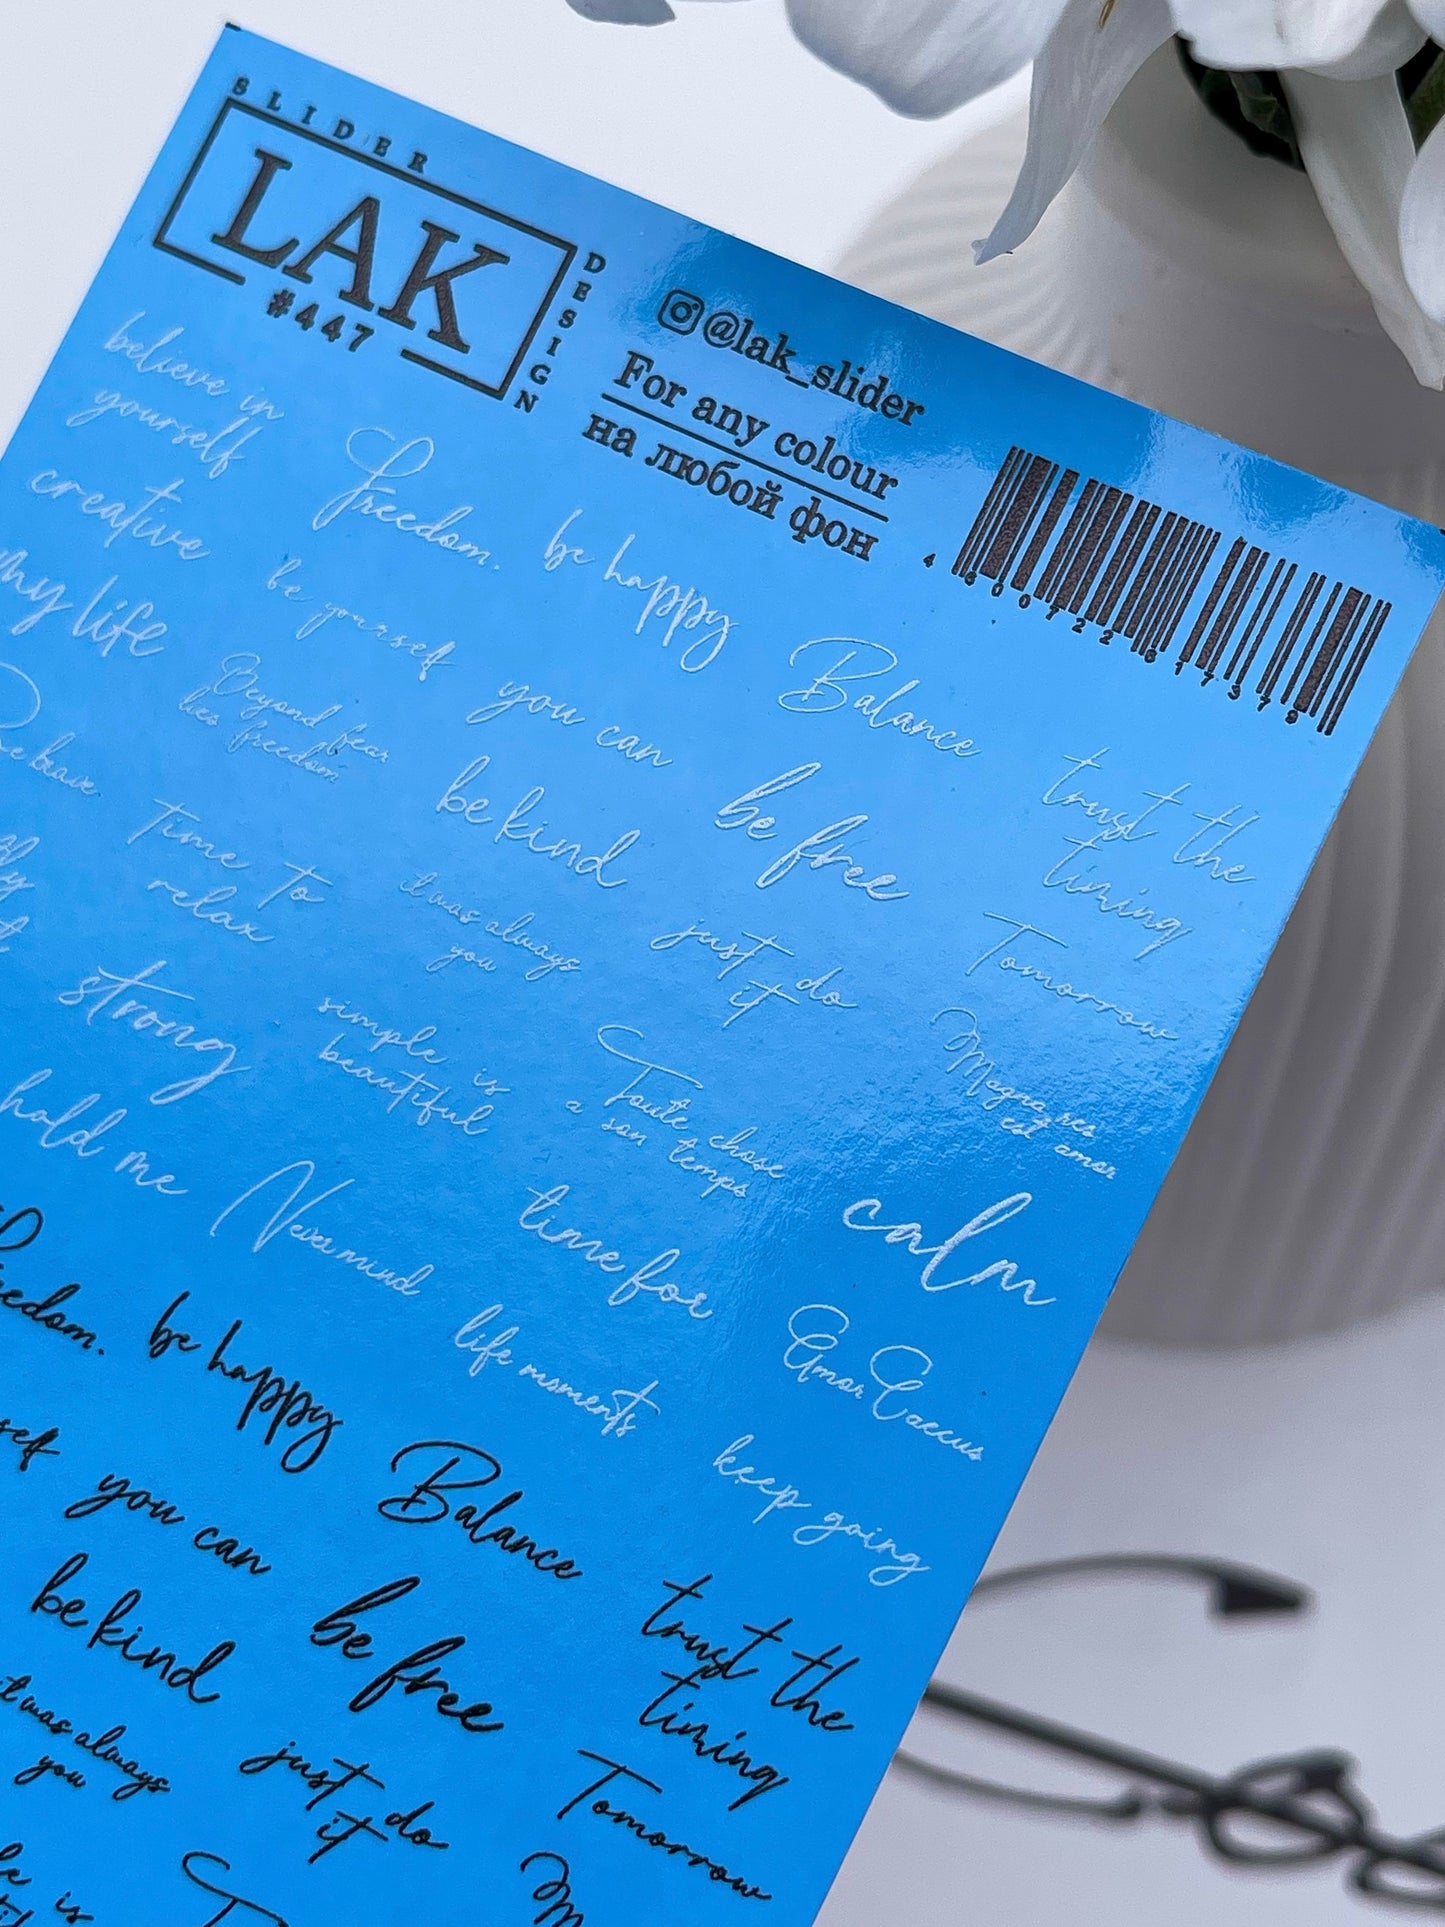 SLIDER
LAK
DESIGN
#447
@lak_slider
For any colour
на любой фон
4600722617379
believe in
yourself
Freedom.
be happy
Balance
trust the
timing
creative
be yourself
you can
be free
Tomorrow
my life
Beyond fear
lies freedom
be kind
just do
it
Magna res
est amor
Be brave
Time to
relax
it was always
you
Toute chose
a son temps
calm
strong
simple is
beautiful
time for
Amor Caecus
hold me
Nevermind
life moments
keep going
be happy
Balance
trust the
timing
you can
be free
Tomorrow
be kind
just do
it
it was always
you
is